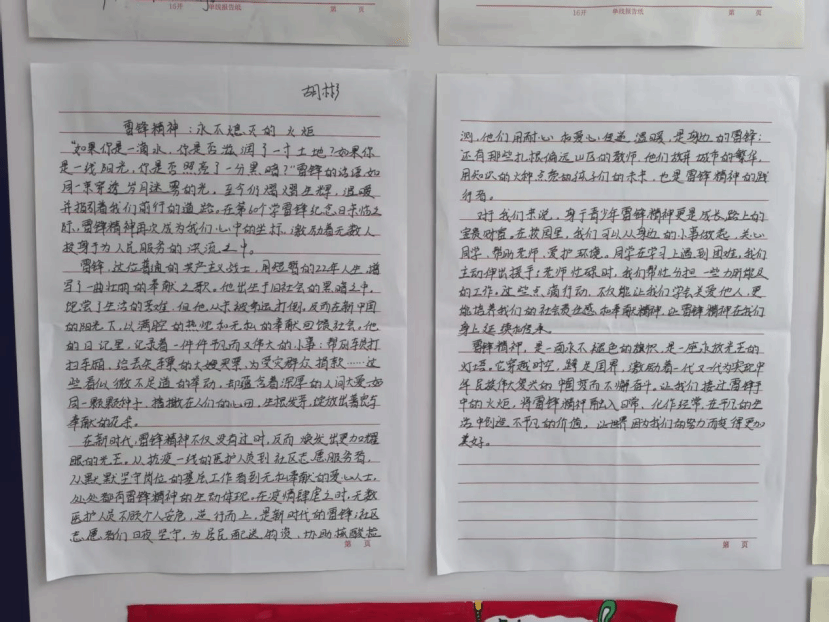 16开 单线报告纸 第 页
16开 单线报告纸 第 页
胡彬
雷锋精神：永不熄灭的火炬
"如果你是一滴水，你是否滋润了一寸土地？如果你
是一线阳光，你是否照亮了一分黑暗？"雷锋的话语，如
同一束穿透岁月迷雾的光。至今仍熠熠生辉，温暖
并指引着我们前行的道路。在第个学雷锋纪念日来临之
际，雷锋精神再次成为我们心中的坐标，激励着无数人
投身于为人民服务的洪流之中。
雷锋，这位普通的共产主义战士，用短暂的22年人生，谱
写了一曲壮丽的奉献之歌。他出生于旧社会的黑暗之中，
饱尝了生活的苦难，但他从未被命运打倒。反而在新中国
的阳光下，以满腔的热忱和无私的奉献回馈社会。他
的日记里，记录着一件件平凡而又伟大的小事：帮助
扫车厢，给丢失车票的大嫂买票，为受灾群众捐款……这
些看似微不足道的举动，却蕴含着深厚的人间大爱，如
同一颗颗种子，播撒在人们的心田，生根发芽，绽放出善良与
奉献的花朵。
在新时代，雷锋精神不仅没有过时，反而焕发出更加耀
眼的光芒。从抗疫一线的医护人员到社区志愿服务者，
从默默坚守岗位的基层工作者到无私奉献的爱心人士，
处处都有雷锋精神的生动体现。在疫情肆虐之时，无数
医护人员不顾个人安危，逆行而上，是新时代的雷锋；社区
志愿者们日夜坚守，为居民配送物资，协助核酸检
第 页
测，他们用耐心和爱心传递温暖，是身边的雷锋；
还有那些扎根偏远山区的教师，他们放弃城市的繁华，
用知识的火种点亮孩子们的未来，也是雷锋精神的践
行者。
对于我们来说，身于青少年雷锋精神更是成长路上的
宝贵财富。在校园里，我们可以从身边的小事做起，关心
同学，帮助老师，爱护环境。同学在学习上遇到困难，我们
主动伸出援手；老师忙碌时，我们帮忙分担一些力所能及
的工作。这些点滴行动，不仅能让我们学会关爱他人，更
能培养我们的社会责任感和奉献精神，让雷锋精神在我们
身上延续和传承。
雷锋精神，是一面永不褪色的旗帜，是一座永放光芒的
灯塔。它穿越时空，跨越国界，激励着一代又一代为实现中
华民族伟大复兴的中国梦而不懈奋斗。让我们接过雷锋手
中的火炬，将雷锋精神融入日常、化作经常，在平凡的生
活中创造不平凡的价值，让世界因为我们的努力而变得更加
美好。
第 页